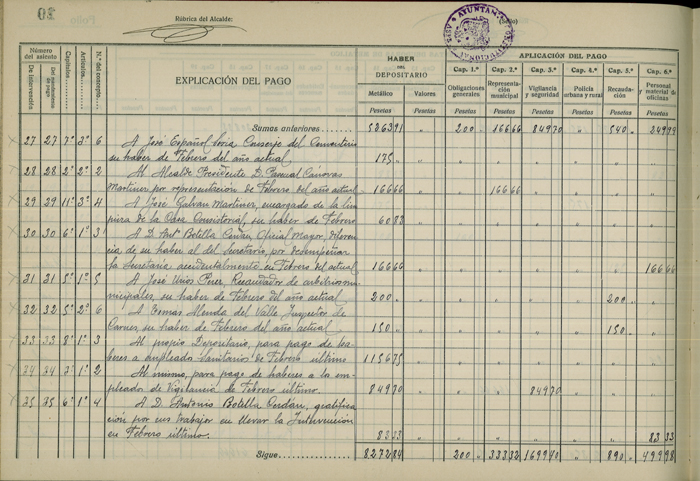 30
Rúbrica del Alcalde:
Folio
AYUNTAMIENTO CONSTITUCIONAL
Número del asiento
De intervención
Del mandamiento de pago
Capítulos
Artículos
N.º del concepto
EXPLICACIÓN DEL PAGO
HABER DEL DEPOSITARIO
Metálico
Valores
APLICACIÓN DEL PAGO
Cap. 1.º Cap. 2.º Cap. 3.º Cap. 4.º Cap. 5.º Cap. 6.º
Obligaciones generales
Representación municipal
Vigilancia y seguridad
Policía urbana y rural
Recaudación
Personal y material de oficinas
Pesetas Pesetas Pesetas Pesetas Pesetas Pesetas Pesetas Pesetas
Sumas anteriores 536391 " 200 " 16666 84970 " 540 " 24999
27 27 7º 3º 6 A José Español Soria Conserje del Cementerio
su haber de Febrero del año actual 175 "
28 28 2º 2º 2 Al Alcalde Presidente D. Pascual Cánovas
Martinez por representación de Febrero del año actual 16666 16666
29 29 11º 3º 4 A José Galvan Martinez, encargado de la lim
pieza de la Casa Consistorial, su haber de Febrero 6083
30 30 6º 1º 3 A D. Antº Botella Cerdan, Oficial Mayor, diferen
cia de su haber al del Secretario, por desempeñar
la Secretaria accidentalmente en Febrero del actual 16666 16666
31 31 5º 1º 5 A José Perez, Recaudador de arbitrios mu
nicipales, su haber de Febrero del año actual 200 " 200 "
32 32 5º 2º 6 A Tomas del Valle de
Carnes, su haber de Febrero del año actual 150 " 150 "
33 33 8º 1º 3 Al propio Depositario, para pago de ha
beres a empleado Sanitarios de Febrero ultimo 115675
34 34 3º 1º 2 Al mismo, para pago de haberes a los em
pleado de Vigilancia de Febrero ultimo. 84970 84970
35 35 6º 1º 4 A D. Antonio Botella Cerdan, gratifica
ción por sus trabajos en llevar la Intervención
en Febrero ultimo. 8333 8333
Sigue 827284 200 " 33332 169940 " 890 " 49998